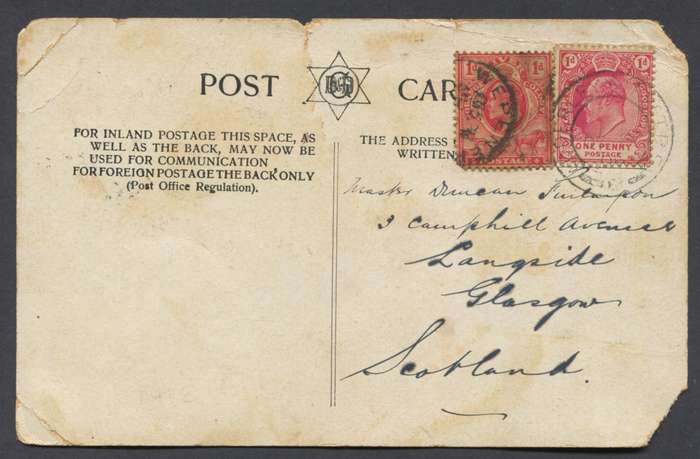 POST CAR
FOR INLAND POSTAGE THIS SPACE, AS
WELL AS THE BACK, MAY NOW BE
USED FOR COMMUNICATION
FOR FOREIGN POSTAGE THE BACK ONLY
(Post Office Regulation).
THE ADDRESS
WRITTEN
1d 1d
POSTAGE
1d 1d
ONE PENNY
POSTAGE
Master Duncan
3 Camphill Avenue
Langside
Glasgow
Scotland.